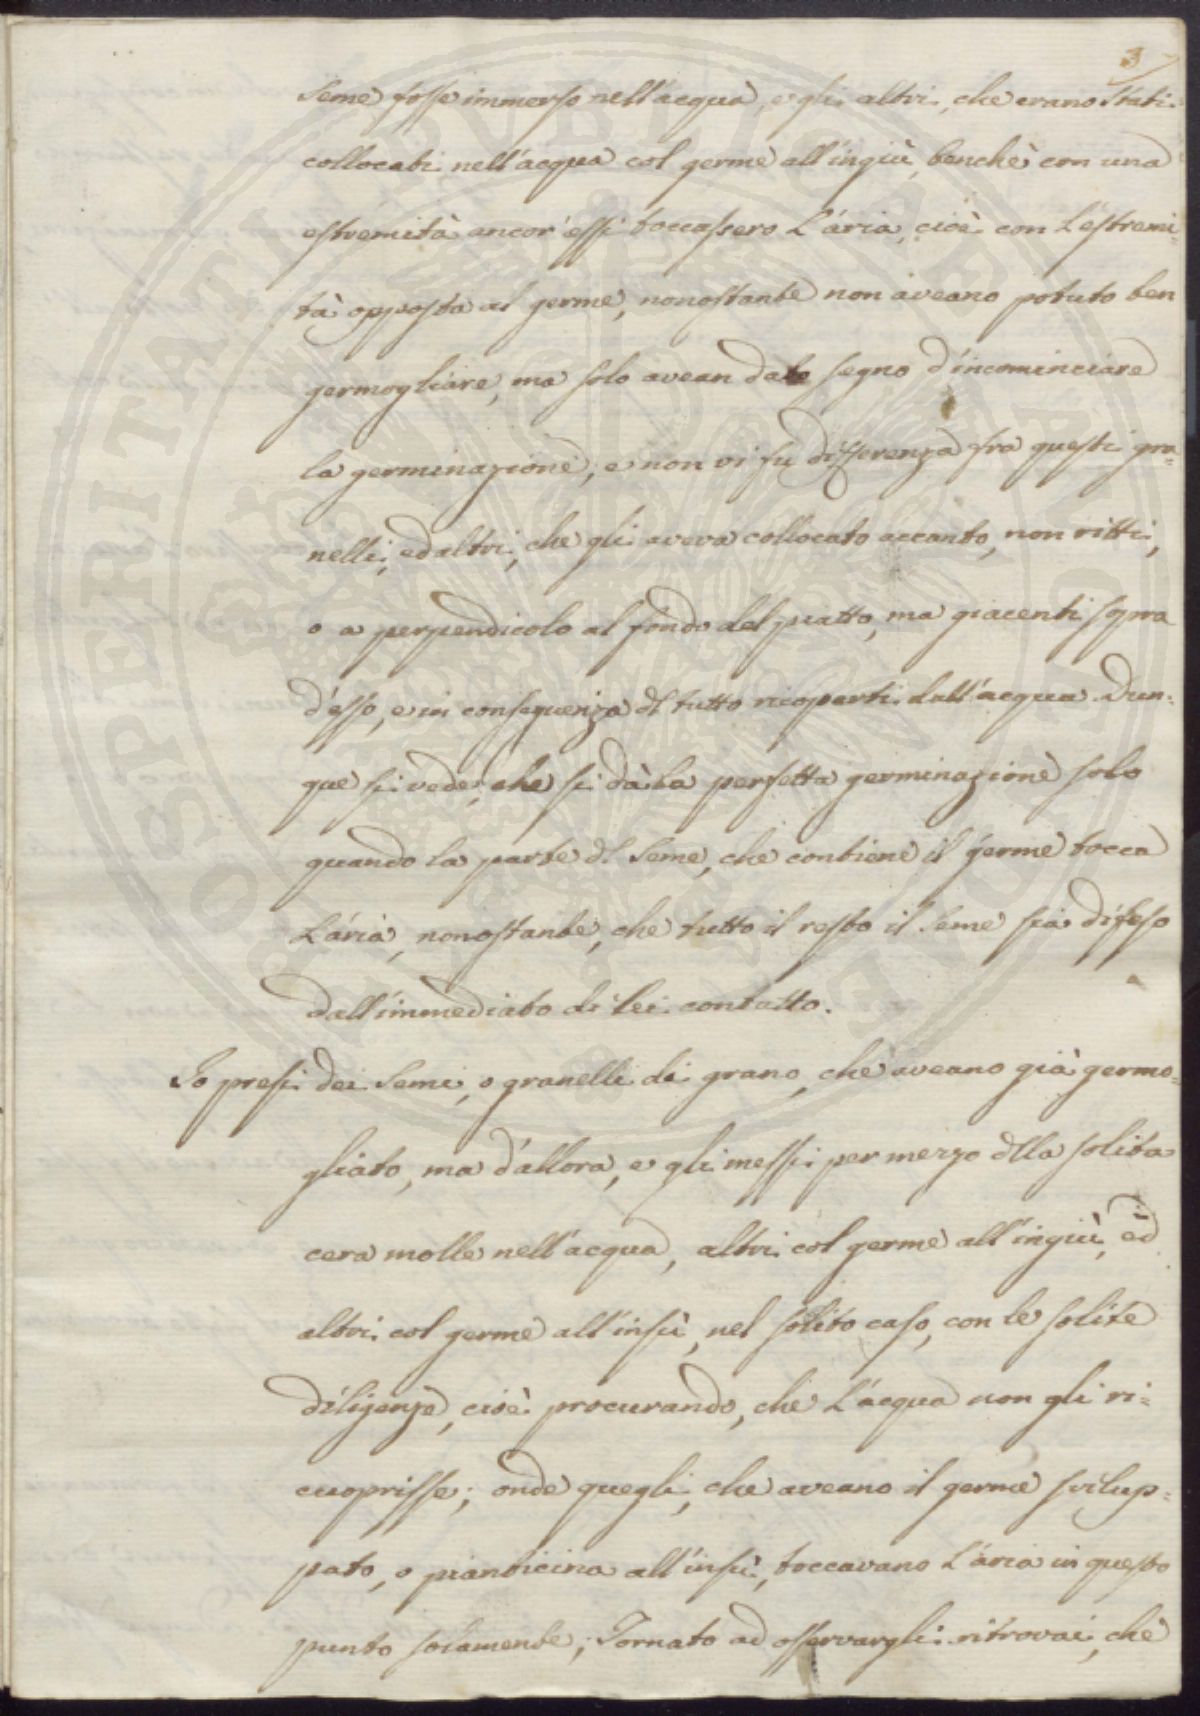 3
Seme fosse immerso nell'acqua, e gli altri, che erano stati
collocati nell'acqua col germe all'ingiù, benchè con una
estremità ancor'essi toccassero L'aria, cioè con L'estremi=
tà opposta al germe, nonostante non aveano potuto ben
germogliare, ma solo avean dato segno d'incominciare
la germinazione, e non vi fu differenza fra questi gra=
nelli, ed altri, che gli aveva collocato accanto, non ritti,
o a perpendicolo al fondo del piatto, ma giacenti sopra
d'esso, e in conseguenza dl tutto ricoperti dall'acqua. Dun=
que si vede, che si dà la perfetta germinazione solo
quando la parte dl Seme, che contiene il germe tocca
L'aria, nonostante, che tutto il resto il Seme sia difeso
dall'immediato di lei contatto.
Io presi dei Semi, o granelli di grano, che aveano già germo=
gliato, ma d'allora, e gli messi per mezzo dlla solita
cera molle nell'acqua, altri col germe all'ingiù, ed
altri col germe all'insù, nel solito caso, con le solite
diligenze, cioè procurando, che L'acqua non gli ri=
cuoprisse; onde quegli, che aveano il germe svilup=
pato, o pianticina all'insù, toccavano L'aria in questo
punto solamente; Tornato ad osservargli ritrovai, che
PROSPERITATI PUBLICAE AUGENDAE